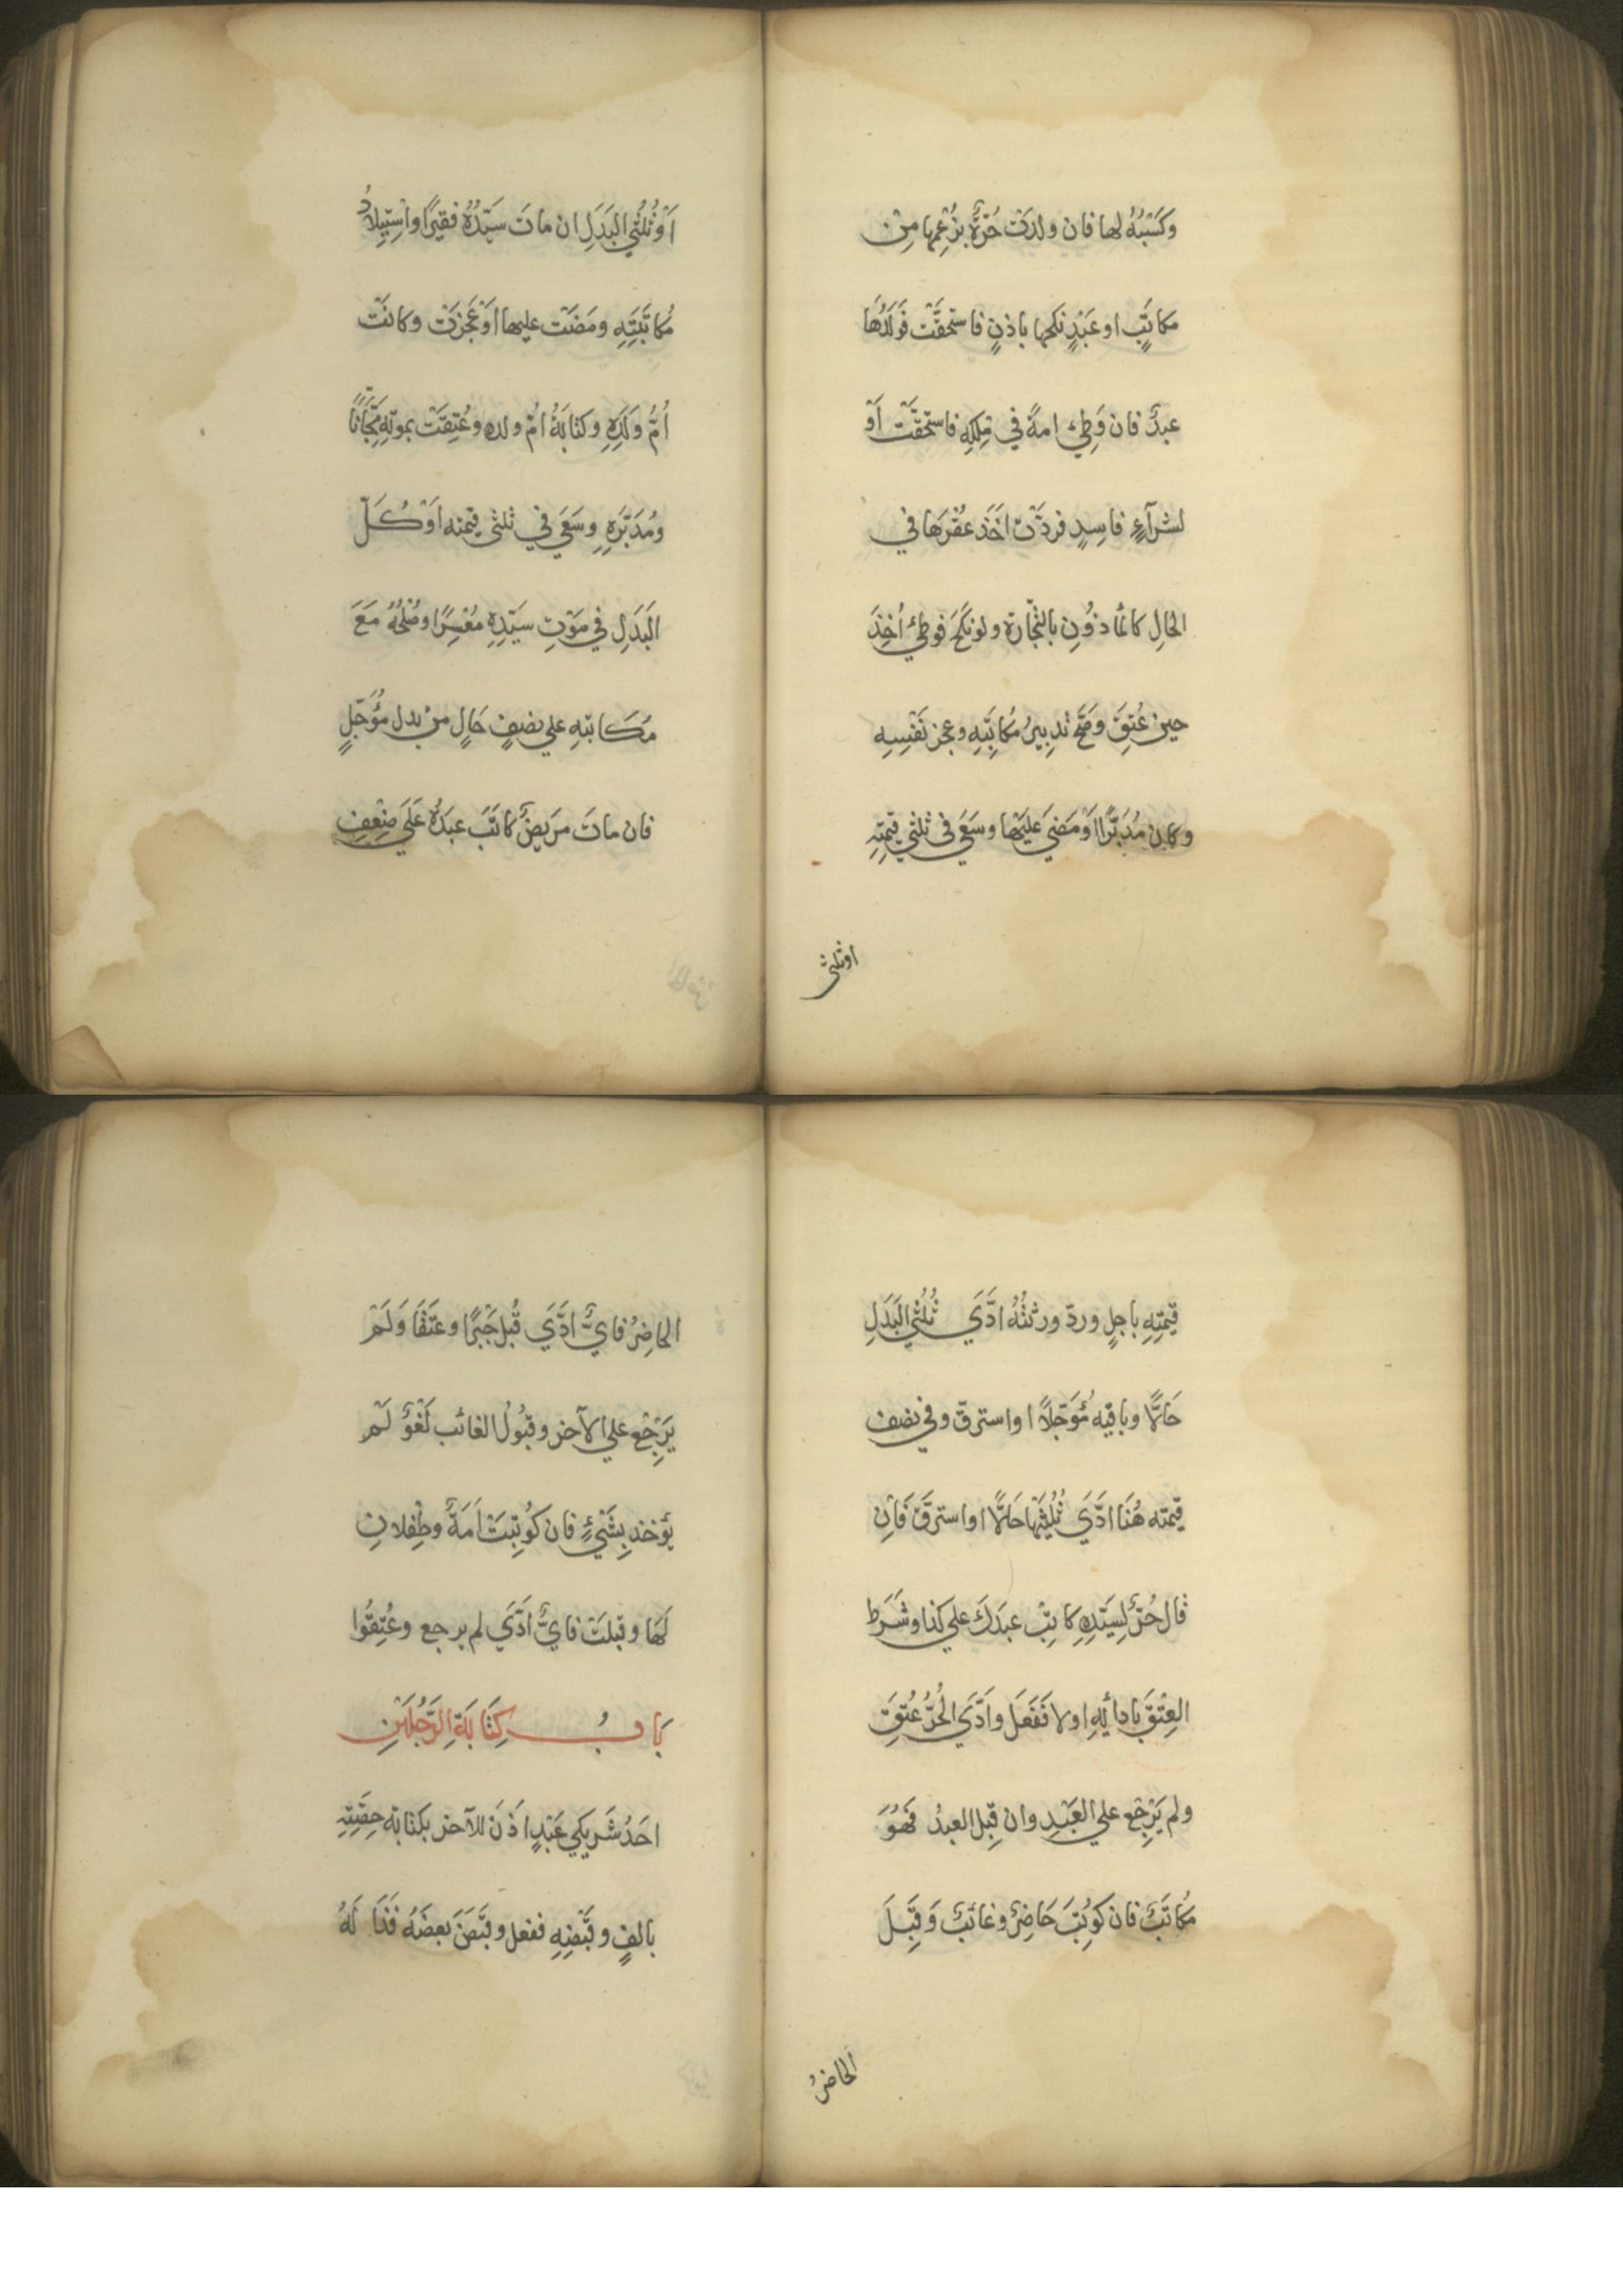 وَكَسْبُهُ لها فان ولدَتْ حُرَّةٌ بزُعْمِها مِنْ
مكاتَبٍ او عَبْدٍ نكحها باذنٍ فاستُحقَّت فَوَلَدُهَا
عبدٌ فان وَطِئ امةً في مِلكِهِ فاستحقَّتْ اَوْ
لشرآءٍ فاسِدٍ فردّتْ اَخَذَ عُقْرَها في
الحَالِ كالمَأذُونِ بالتِّجَارة ولو نكَحَ فوطئ اُخِذَ
حين عُتِقَ وصَحَّ تدبيرُ مُكَاتَبِهِ وعجز نَفْسِهِ
وكان مُدَبَّرًا اَوْ مَضَي عَليْها وسَعَي في ثلثي قيمَتِهِ
اوثلثي
اَوْ ثُلُثَي البَدَلِ ان ماتَ سَيِّدُهُ فقيرًا واسْتِيلادُ
مُكاتَبَتِهِ ومَضَت عليها اَوْ عَجَزَتْ وكانَتْ
اُمَّ وَلَدِهِ وكتابَةُ امّ ولده وعُتِقَتْ بموتِهِ مَجَّانًا
ومُدَبَّرِهِ وسَعَي في ثلثي قيمته اَوْ كُلّ
البَدَلِ في مَوْتِ سَيِّدِهِ مُعْسِرًا وصُلْحُهُ مَعَ
مُكَاتبهِ علي نصْفٍ حَالٍ من بدل مُؤَجَّلٍ
فان ماتَ مرَيضٌ كاتَبَ عبدَهُ عَلَي ضِعْفِ
قيمَتِهِ باجلٍ وردّ ورثتُهُ ادَّيَ ثُلُثَي البَدَلِ
حَالًّا وباقيه مُؤَجّلًا او استرقّ وفي نصف
قيمته هُنَا ادَّيَ ثُلثَيْهَا حَالًّا او استرقَّ فَاِن
قال حُرٌّ لِسَيّدِهِ كاتِبْ عبدَكَ علي كذا وشَرَط
العِتْقَ بادائِهِ اولا فَفَعَلَ واَدَّيَ الحُرُّ عُتِقَ
ولم يَرْجِع علي العَبْدِ وان قبِل العبدُ فَهُوَ
مُكاتَبٌ فان كُوتِبَ حَاضِرٌ وغائبٌ وَقَبِلَ
الحاضرُ
الحاضِرُ فايٌّ ادَّيَ قُبِلَ جَبْرًا وعَتَقَا وَلَمْ
يَرْجِع علي الآخر وقبُولُ الغائب لَغْوٌ لَمْ
يؤخذ بِشَيْءٍ فان كُوتِبَتْ اَمَةٌ وطِفلانِ
لَهَا وقبلَتْ فايٌّ اَدَّيَ لم يرجع وعُتِقُوا
بَابُ كِتَابَةِ الرَّجُلَيْنِ
احَدُ شَريكَي عَبْدٍ اَذِنَ للآخر بكتابة حِصَّتِهِ
بالفٍ وقَبْضِهِ ففعل وقبَضَ بعضَهُ فَذَا لَهُ